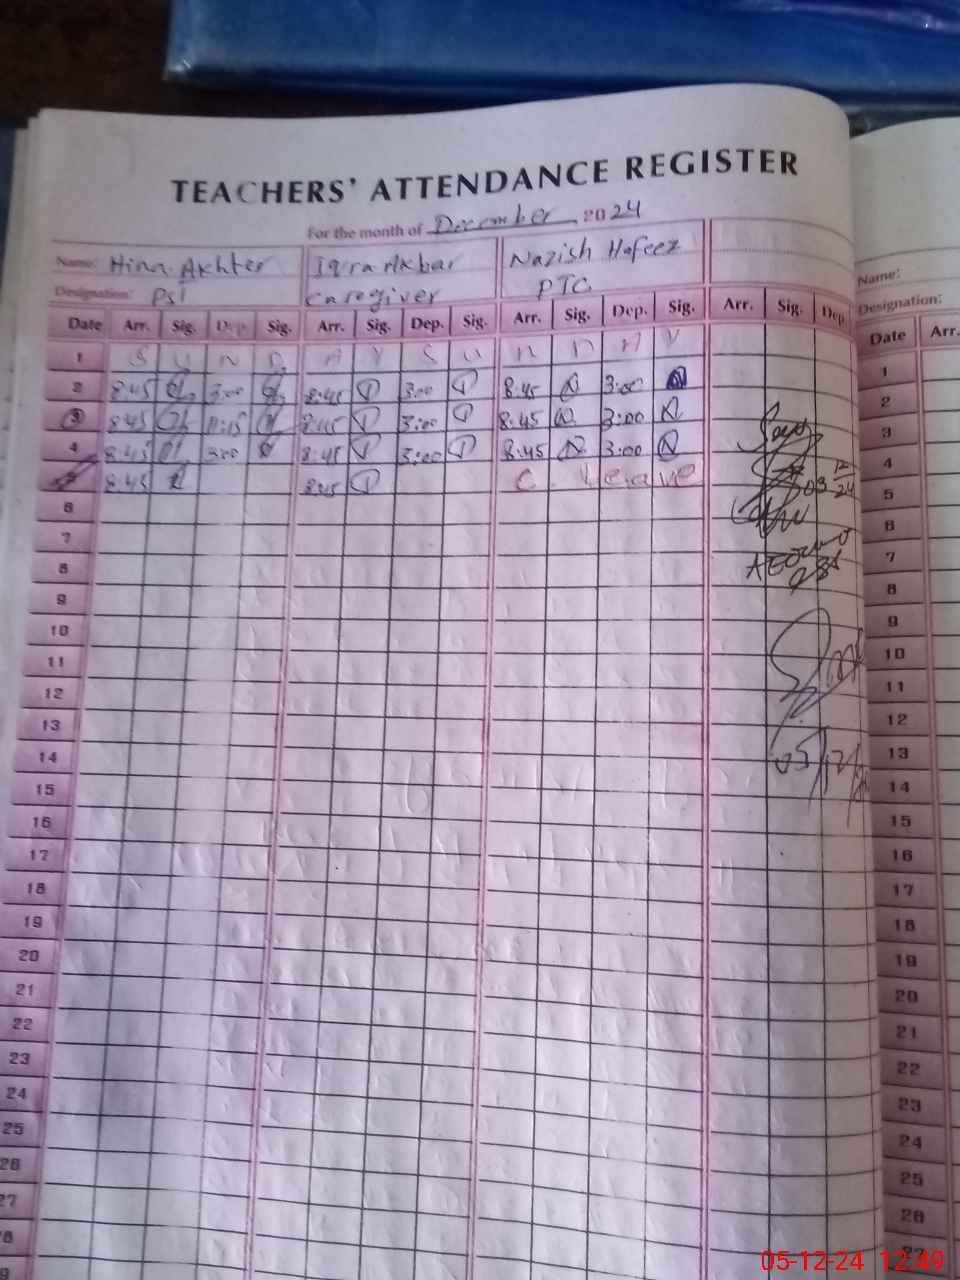 TEACHERS' ATTENDANCE REGISTER
For the month of December 2024
Name: Hina Akhter Iqra Akbar Nazish Hafeez
Designation: PST Caregiver PTC
Date Arr. Sig. Dep. Sig. Arr. Sig. Dep. Sig. Arr. Sig. Dep. Sig. Arr. Sig. Dep.
1 S u n D A Y S u n D A Y
2 8:45 3:00 8:45 3:00 8:45 3:00
3 8:45 11:15 8:45 3:00 8:45 3:00
4 8:45 3:00 8:45 3:00 8:45 3:00
8:45 8:45 C. Leave
03 12/24
6
7
8
9
10
11
12
13
14
05/12/
15
16
17
18
19
20
21
22
23
24
25
26
27
Name:
Designation:
Date Arr.
1
2
3
4
5
6
7
8
9
10
11
12
13
14
15
16
17
18
19
20
21
22
23
24
25
26
27
05-12-24 12:49